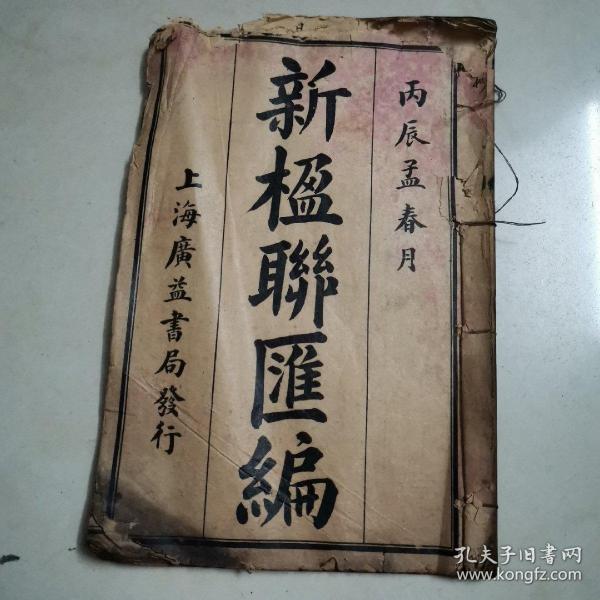 丙辰孟春月
新楹聯匯編
上海廣益書局發行
孔夫子旧書网
www.kongfz.com